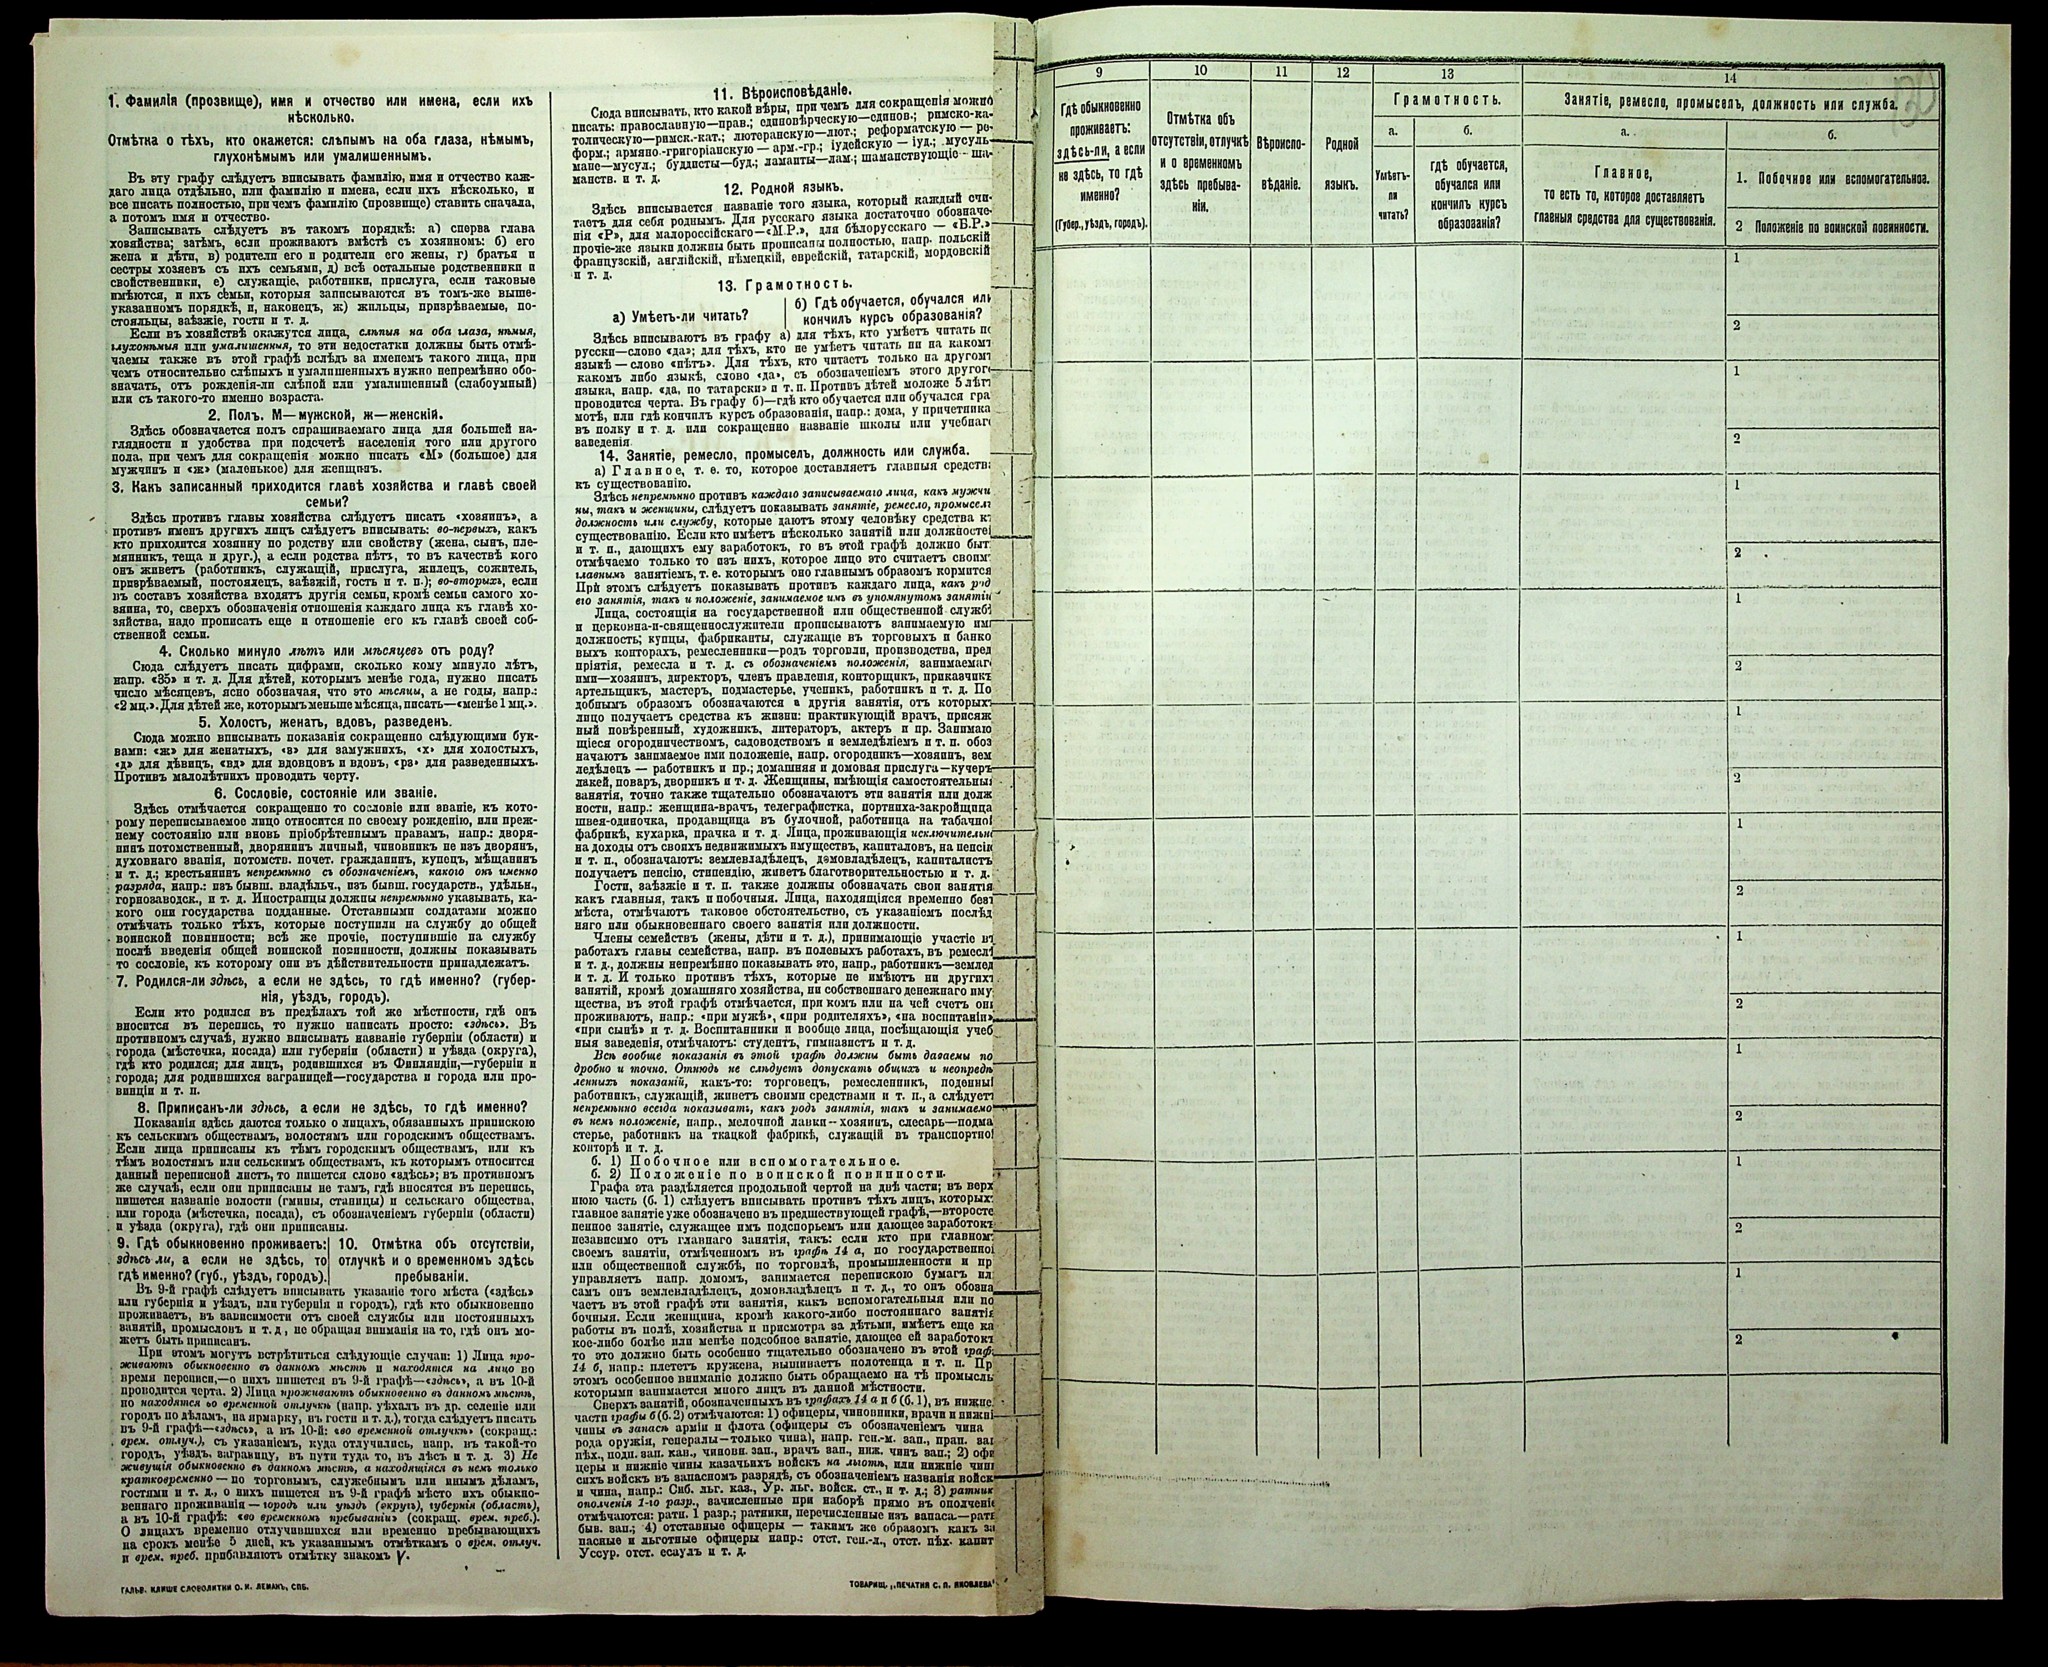 1. Фамилія (прозвище), имя и отчество или имена, если ихъ
нѣсколько.
Отмѣтка о тѣхъ, кто окажется: слѣпымъ на оба глаза, нѣмымъ,
глухонѣмымъ или умалишеннымъ.
Въ эту графу слѣдуетъ вписывать фамилію, имя и отчество каж-
даго лица отдѣльно, или фамилію и имена, если ихъ нѣсколько, и
все писать полностью, при чемъ фамилію (прозвище) ставить сначала,
а потомъ имя и отчество.
Записывать слѣдуетъ въ такомъ порядкѣ: а) сперва глава
хозяйства; затѣмъ, если проживаютъ вмѣстѣ съ хозяиномъ: б) его
жена и дѣти, в) родители его и родители его жены, г) братья и
сестры хозяевъ съ ихъ семьями, д) всѣ остальные родственники и
свойственники, е) служащіе, работники, прислуга, если таковые
имѣются, и ихъ семьи, которыя записываются въ томъ-же выше-
указанномъ порядкѣ, и, наконецъ, ж) жильцы, призрѣваемые, по-
стояльцы, заѣзжіе, гости и т. д.
Если въ хозяйствѣ окажутся лица, слѣпыя на оба глаза, нѣмыя,
глухонѣмыя или умалишенныя, то эти недостатки должны быть отмѣ-
чаемы также въ этой графѣ вслѣдъ за именемъ такого лица, при
чемъ относительно слѣпыхъ и умалишенныхъ нужно непремѣнно обо-
значать, отъ рожденія-ли слѣпой или умалишенный (слабоумный)
или съ такого-то именно возраста.
2. Полъ. М—мужской, ж—женскій.
Здѣсь обозначается полъ спрашиваемаго лица для большей на-
глядности и удобства при подсчетѣ населенія того или другого
пола, при чемъ для сокращенія можно писать «М» (большое) для
мужчинъ и «ж» (маленькое) для женщинъ.
3. Какъ записанный приходится главѣ хозяйства и главѣ своей
семьи?
Здѣсь противъ главы хозяйства слѣдуетъ писать «хозяинъ», а
противъ именъ другихъ лицъ слѣдуетъ вписывать: во-первыхъ, какъ
кто приходится хозяину по родству или свойству (жена, сынъ, пле-
мянникъ, теща и друг.), а если родства нѣтъ, то въ качествѣ кого
онъ живетъ (работникъ, служащій, прислуга, жилецъ, сожитель,
призрѣваемый, постоялецъ, заѣзжій, гость и т. п.); во-вторыхъ, если
въ составъ хозяйства входятъ другія семьи, кромѣ семьи самого хо-
зяина, то, сверхъ обозначенія отношенія каждаго лица къ главѣ хо-
зяйства, надо прописать еще и отношеніе его къ главѣ своей соб-
ственной семьи.
4. Сколько минуло лѣтъ или мѣсяцевъ отъ роду?
Сюда слѣдуетъ писать цифрами, сколько кому минуло лѣтъ,
напр. «35» и т. д. Для дѣтей, которымъ менѣе года, нужно писать
число мѣсяцевъ, ясно обозначая, что это мѣсяцы, а не годы, напр.:
«2 мц.». Для дѣтей же, которымъ меньше мѣсяца, писать—«менѣе 1 мц.».
5. Холостъ, женатъ, вдовъ, разведенъ.
Сюда можно вписывать показанія сокращенно слѣдующими бук-
вами: «ж» для женатыхъ, «з» для замужнихъ, «х» для холостыхъ,
«д» для дѣвицъ, «вд» для вдовцовъ и вдовъ, «рз» для разведенныхъ.
Противъ малолѣтнихъ проводить черту.
6. Сословіе, состояніе или званіе.
Здѣсь отмѣчается сокращенно то сословіе или званіе, къ кото-
рому переписываемое лицо относится по своему рожденію, или преж-
нему состоянію или вновь пріобрѣтеннымъ правамъ, напр.: дворя-
нинъ потомственный, дворянинъ личный, чиновникъ не изъ дворянъ,
духовнаго званія, потомств. почет. гражданинъ, купецъ, мѣщанинъ
и т. д.; крестьянинъ непремѣнно съ обозначеніемъ, какого онъ именно
разряда, напр.: изъ бывш. владѣльч., изъ бывш. государств., удѣльн.,
горнозаводск., и т. д. Иностранцы должны непремѣнно указывать, ка-
кого они государства подданные. Отставными солдатами можно
отмѣчать только тѣхъ, которые поступили на службу до общей
воинской повинности; всѣ же прочіе, поступившіе на службу
послѣ введенія общей воинской повинности, должны показывать
то сословіе, къ которому они въ дѣйствительности принадлежатъ.
7. Родился-ли здѣсь, а если не здѣсь, то гдѣ именно? (губер-
нія, уѣздъ, городъ).
Если кто родился въ предѣлахъ той же мѣстности, гдѣ онъ
вносится въ перепись, то нужно написать просто: «здѣсь». Въ
противномъ случаѣ, нужно вписывать названіе губерніи (области) и
города (мѣстечка, посада) или губерніи (области) и уѣзда (округа),
гдѣ кто родился; для лицъ, родившихся въ Финляндіи,—губерніи и
города; для родившихся заграницей—государства и города или про-
винціи и т. п.
8. Приписанъ-ли здѣсь, а если не здѣсь, то гдѣ именно?
Показанія здѣсь даются только о лицахъ, обязанныхъ припискою
къ сельскимъ обществамъ, волостямъ или городскимъ обществамъ.
Если лица приписаны къ тѣмъ городскимъ обществамъ, или къ
тѣмъ волостямъ или сельскимъ обществамъ, къ которымъ относится
данный переписной листъ, то пишется слово «здѣсь»; въ противномъ
же случаѣ, если они приписаны не тамъ, гдѣ вносятся въ перепись,
пишется названіе волости (гмины, станицы) и сельскаго общества,
или города (мѣстечка, посада), съ обозначеніемъ губерніи (области)
и уѣзда (округа), гдѣ они приписаны.
9. Гдѣ обыкновенно проживаетъ:
здѣсь ли, а если не здѣсь, то
гдѣ именно? (губ., уѣздъ, городъ).
10. Отмѣтка объ отсутствіи,
отлучкѣ и о временномъ здѣсь
пребываніи.
Въ 9-й графѣ слѣдуетъ вписывать указаніе того мѣста («здѣсь»
или губернія и уѣздъ, или губернія и городъ), гдѣ кто обыкновенно
проживаетъ, въ зависимости отъ своей службы или постоянныхъ
занятій, промысловъ и т. д., не обращая вниманія на то, гдѣ онъ мо-
жетъ быть приписанъ.
При этомъ могутъ встрѣтиться слѣдующіе случаи: 1) Лица про-
живаютъ обыкновенно въ данномъ мѣстѣ и находятся на лицо во
время переписи,—о нихъ пишется въ 9-й графѣ—«здѣсь», а въ 10-й
проводится черта. 2) Лица проживаютъ обыкновенно въ данномъ мѣстѣ,
но находятся во временной отлучкѣ (напр. уѣхалъ въ др. селеніе или
городъ по дѣламъ, на ярмарку, въ гости и т. д.), тогда слѣдуетъ писать
въ 9-й графѣ—«здѣсь», а въ 10-й: «во временной отлучкѣ» (сокращ.:
врем. отлуч.), съ указаніемъ, куда отлучились, напр. въ такой-то
городъ, уѣздъ, заграницу, въ пути туда то, въ лѣсъ и т. д. 3) Не
живущія обыкновенно въ данномъ мѣстѣ, а находящіяся въ немъ только
кратковременно—по торговымъ, служебнымъ или инымъ дѣламъ,
гостями и т. д., о нихъ пишется въ 9-й графѣ мѣсто ихъ обыкно-
веннаго проживанія—городъ или уѣздъ (округъ), губернія (область),
а въ 10-й графѣ: «во временномъ пребываніи» (сокращ. врем. преб.).
О лицахъ временно отлучившихся или временно пребывающихъ
на срокъ менѣе 5 дней, къ указаннымъ отмѣткамъ о врем. отлуч.
и врем. преб. прибавляютъ отмѣтку знакомъ V.
ГАЛЬВ. КЛИШЕ СЛОВОЛИТНИ О. И. ЛЕМАНЪ, СПБ.
11. Вѣроисповѣданіе.
Сюда вписывать, кто какой вѣры, при чемъ для сокращенія можно
писать: православную—прав.; единовѣрческую—единов.; римско-ка-
толическую—римск.-кат.; лютеранскую—лют.; реформатскую—ре-
форм.; армяно-григоріанскую—арм.-гр.; іудейскую—іуд.; мусуль-
мане—мусул.; буддисты—буд.; ламаиты—лам.; шаманствующіе—ша-
манств. и т. д.
12. Родной языкъ.
Здѣсь вписывается названіе того языка, который каждый счи-
таетъ для себя роднымъ. Для русскаго языка достаточно обозначе-
нія «Р», для малороссійскаго—«М.Р.», для бѣлорусскаго — «Б.Р.»
прочіе-же языки должны быть прописаны полностью, напр. польскій
французскій, англійскій, нѣмецкій, еврейскій, татарскій, мордовскій
и т. д.
13. Грамотность.
а) Умѣетъ-ли читать?
б) Гдѣ обучается, обучался или
кончилъ курсъ образованія?
Здѣсь вписываютъ въ графу а) для тѣхъ, кто умѣетъ читать по
русски—слово «да»; для тѣхъ, кто не умѣетъ читать ни на каком
языкѣ—слово «нѣтъ». Для тѣхъ, кто читаетъ только на другом
какомъ либо языкѣ, слово «да», съ обозначеніемъ этого другог
языка, напр. «да, по татарски» и т. п. Противъ дѣтей моложе 5 лѣт
проводится черта. Въ графу б)—гдѣ кто обучается или обучался гра
мотѣ, или гдѣ кончилъ курсъ образованія, напр.: дома, у причетника
въ полку и т. д. или сокращенно названіе школы или учебнаг
заведенія.
14. Занятіе, ремесло, промыселъ, должность или служба.
а) Главное, т. е. то, которое доставляетъ главныя средств
къ существованію.
Здѣсь непремѣнно противъ каждаго записываемаго лица, какъ мужчи
ны, такъ и женщины, слѣдуетъ показывать занятіе, ремесло, промысел
должность или службу, которые даютъ этому человѣку средства к
существованію. Если кто имѣетъ нѣсколько занятій или должностей
и т. п., дающихъ ему заработокъ, то въ этой графѣ должно быт
отмѣчаемо только то изъ нихъ, которое лицо это считаетъ своим
главнымъ занятіемъ, т. е. которымъ оно главнымъ образомъ кормится
При этомъ слѣдуетъ показывать противъ каждаго лица, какъ род
его занятія, такъ и положеніе, занимаемое имъ въ упомянутомъ занятіи
Лица, состоящія на государственной или общественной служб
и церковна-и-священнослужители прописываютъ занимаемую им
должность; купцы, фабриканты, служащіе въ торговыхъ и банко
выхъ конторахъ, ремесленники—родъ торговли, производства, пред
пріятія, ремесла и т. д. съ обозначеніемъ положенія, занимаемаг
ими—хозяинъ, директоръ, членъ правленія, конторщикъ, приказчик
артельщикъ, мастеръ, подмастерье, ученикъ, работникъ и т. д. По
добнымъ образомъ обозначаются и другія занятія, отъ которых
лицо получаетъ средства къ жизни: практикующій врачъ, присяж
ный повѣренный, художникъ, литераторъ, актеръ и пр. Занимаю
щіеся огородничествомъ, садоводствомъ и земледѣліемъ и т. п. обоз
начаютъ занимаемое ими положеніе, напр. огородникъ—хозяинъ, зем
ледѣлецъ — работникъ и пр.; домашняя и домовая прислуга—кучеръ
лакей, поваръ, дворникъ и т. д. Женщины, имѣющія самостоятельныя
занятія, точно также тщательно обозначаютъ эти занятія или долж
ности, напр.: женщина-врачъ, телеграфистка, портниха-закройщица
швея-одиночка, продавщица въ булочной, работница на табачной
фабрикѣ, кухарка, прачка и т. д. Лица, проживающія исключительно
на доходы отъ своихъ недвижимыхъ имуществъ, капиталовъ, на пенсіи
и т. п., обозначаютъ: землевладѣлецъ, домовладѣлецъ, капиталистъ
получаетъ пенсію, стипендію, живетъ благотворительностью и т. д.
Гости, заѣзжіе и т. п. также должны обозначать свои занятія
какъ главныя, такъ и побочныя. Лица, находящіяся временно без
мѣста, отмѣчаютъ таковое обстоятельство, съ указаніемъ послѣд
няго или обыкновеннаго своего занятія или должности.
Члены семействъ (жены, дѣти и т. д.), принимающіе участіе въ
работахъ главы семейства, напр. въ полевыхъ работахъ, въ ремесл
и т. д., должны непремѣнно показывать это, напр., работникъ—землед
и т. д. И только противъ тѣхъ, которые не имѣютъ ни других
занятій, кромѣ домашняго хозяйства, ни собственнаго денежнаго иму
щества, въ этой графѣ отмѣчается, при комъ или на чей счетъ они
проживаютъ, напр.: «при мужѣ», «при родителяхъ», «на воспитаніи»
«при сынѣ» и т. д. Воспитанники и вообще лица, посѣщающія учеб
ныя заведенія, отмѣчаютъ: студентъ, гимназистъ и т. д.
Всѣ вообще показанія въ этой графѣ должны быть даваемы по
дробно и точно. Отнюдь не слѣдуетъ допускать общихъ и неопредѣ
ленныхъ показаній, какъ-то: торговецъ, ремесленникъ, поденный
работникъ, служащій, живетъ своими средствами и т. п., а слѣдуетъ
непремѣнно всегда показывать, какъ родъ занятія, такъ и занимаемо
въ немъ положеніе, напр., мелочной лавки—хозяинъ, слесарь—подма
стерье, работникъ на ткацкой фабрикѣ, служащій въ транспортной
конторѣ и т. д.
б. 1) Побочное или вспомогательное.
б. 2) Положеніе по воинской повинности.
Графа эта раздѣляется продольной чертой на двѣ части; въ верх
нюю часть (б. 1) слѣдуетъ вписывать противъ тѣхъ лицъ, которых
главное занятіе уже обозначено въ предшествующей графѣ,—второсте
пенное занятіе, служащее имъ подспорьемъ или дающее заработокъ
независимо отъ главнаго занятія, такъ: если кто при главном
своемъ занятіи, отмѣченномъ въ графѣ 14 а, по государственной
или общественной службѣ, по торговлѣ, промышленности и пр
управляетъ напр. домомъ, занимается перепискою бумагъ ил
самъ онъ землевладѣлецъ, домовладѣлецъ и т. д., то онъ обозна
чаетъ въ этой графѣ эти занятія, какъ вспомогательныя или по
бочныя. Если женщина, кромѣ какого-либо постояннаго занятія
работы въ полѣ, хозяйства и присмотра за дѣтьми, имѣетъ еще ка
кое-либо болѣе или менѣе подсобное занятіе, дающее ей заработокъ
то это должно быть особенно тщательно обозначено въ этой граф
14 б, напр.: плететъ кружева, вышиваетъ полотенца и т. п. Пр
этомъ особенное вниманіе должно быть обращаемо на тѣ промыслы
которыми занимается много лицъ въ данной мѣстности.
Сверхъ занятій, обозначенныхъ въ графахъ 14 а и б (б. 1), въ нижне
части графы б (б. 2) отмѣчаются: 1) офицеры, чиновники, врачи и нижні
чины въ запасѣ арміи и флота (офицеры съ обозначеніемъ чина
рода оружія, генералы—только чина), напр. ген.-м. зап., прап. зап
пѣх., подп. зап. кав., чиновн. зап., врачъ зап., ниж. чинъ зап.; 2) офи
церы и нижніе чины казачьихъ войскъ на льготѣ, или нижніе чин
сихъ войскъ въ запасномъ разрядѣ, съ обозначеніемъ названія войск
и чина, напр.: Сиб. льг. каз., Ур. льг. войск. ст., и т. д.; 3) ратник
ополченія 1-го разр., зачисленные при наборѣ прямо въ ополчені
отмѣчаются: ратн. 1 разр.; ратники, перечисленные изъ запаса.—ратн
быв. зап.; 4) отставные офицеры — такимъ же образомъ какъ за
пасные и льготные офицеры напр.: отст. ген.-л., отст. пѣх. капит
Уссур. отст. есаулъ и т. д.
ТОВАРИЩ. „ПЕЧАТНЯ С. П. ЯКОВЛЕВА“
9
10
11
12
13
14
Гдѣ обыкновенно
проживаетъ:
здѣсь-ли, а если
не здѣсь, то гдѣ
именно?
(Губер., уѣздъ, городъ).
Отмѣтка объ
отсутствіи, отлучкѣ
и о временномъ
здѣсь пребыва-
ніи.
Вѣроиспо-
вѣданіе.
Родной
языкъ.
Грамотность.
а.
Умѣетъ-
ли
читать?
б.
гдѣ обучается,
обучался или
кончилъ курсъ
образованія?
Занятіе, ремесло, промыселъ, должность или служба.
а.
Главное,
то есть то, которое доставляетъ
главныя средства для существованія.
б.
1. Побочное или вспомогательное.
2 Положеніе по воинской повинности.
1
2
1
2
1
2
1
2
1
2
1
2
1
2
1
2
1
2
1
2